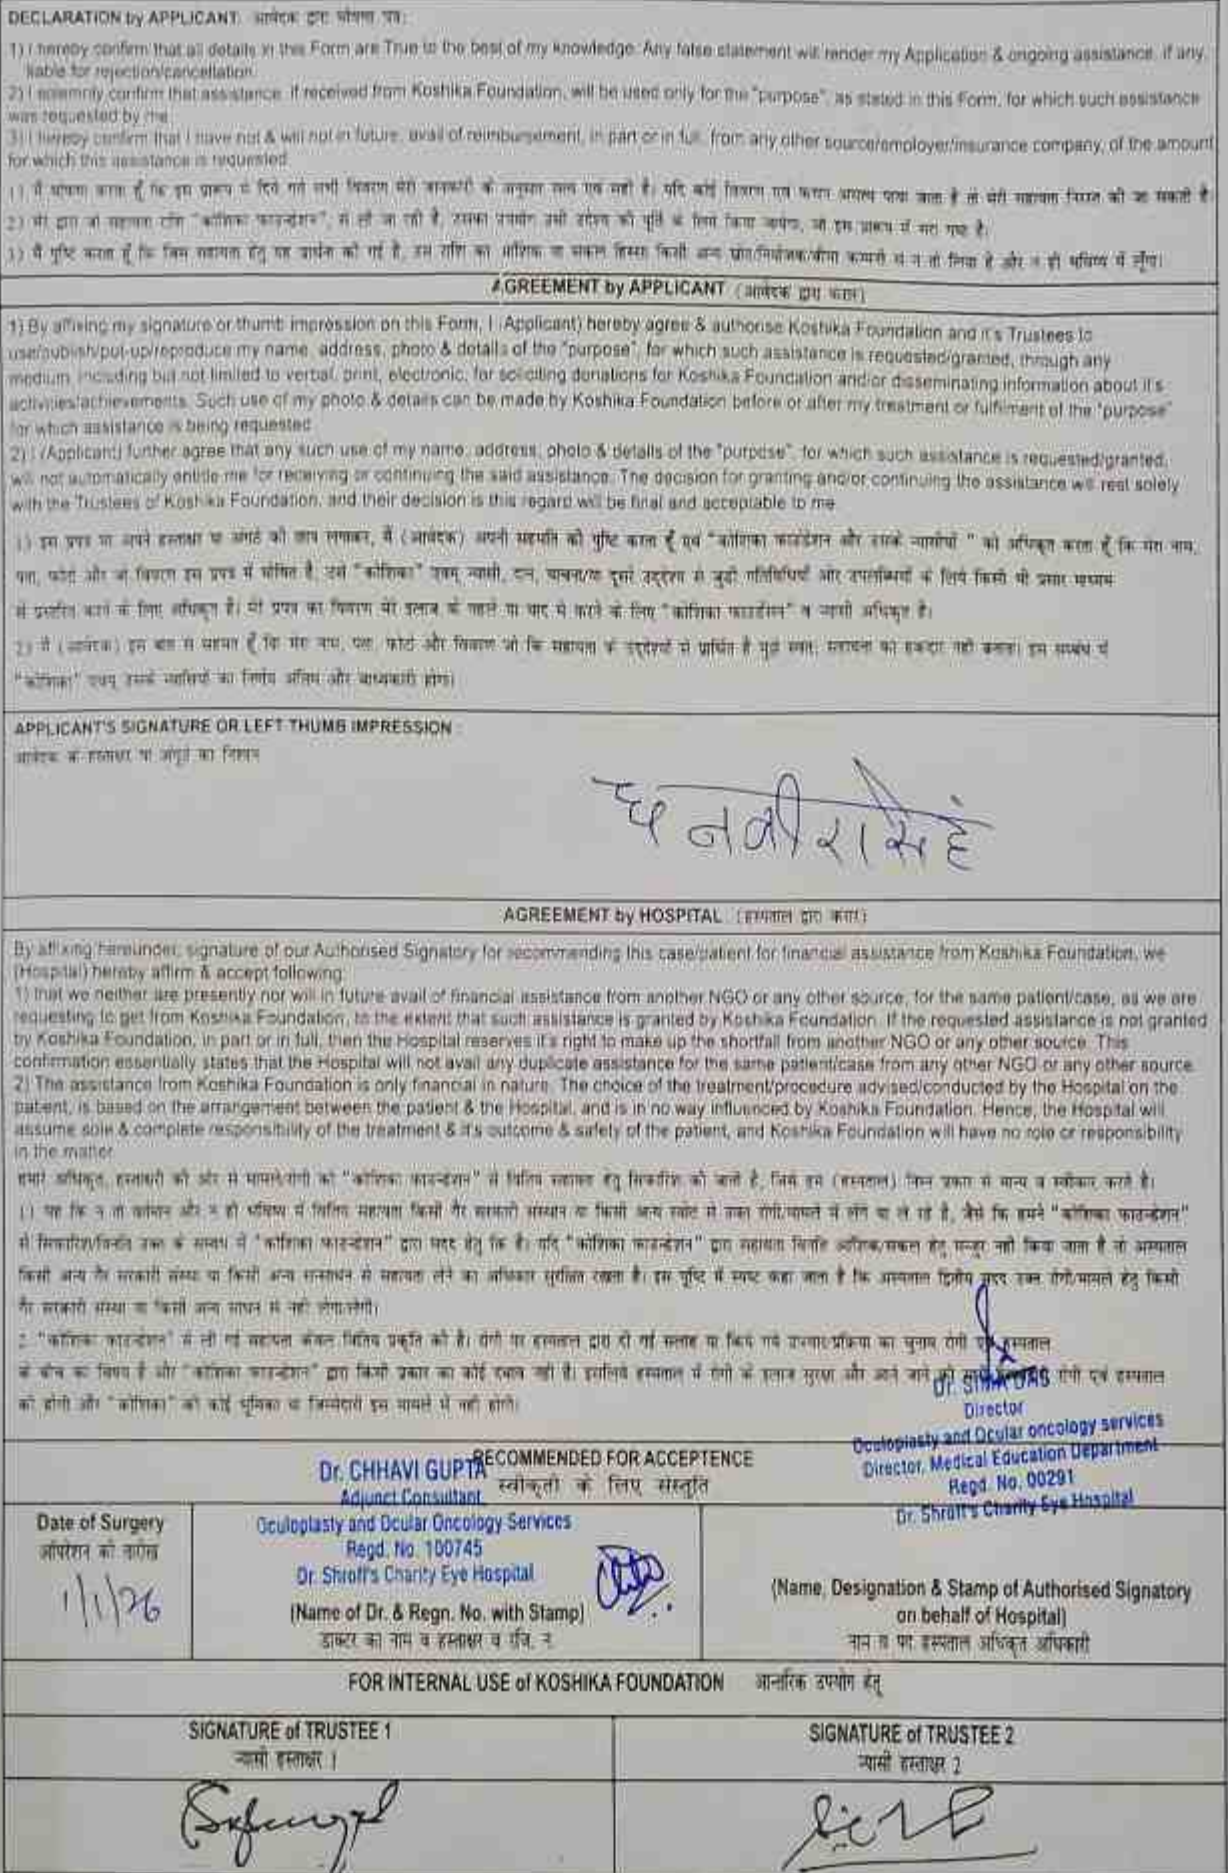 DECLARATION by APPLICANT: आवेदक द्वारा घोषणा पत्र:
1) I hereby confirm that all details in this Form are True to the best of my knowledge. Any false statement will render my Application & ongoing assistance, if any,
liable for rejection/cancellation.
2) I solemnly confirm that assistance, if received from Koshika Foundation, will be used only for the "purpose", as stated in this Form, for which such assistance
was requested by me.
3) I hereby confirm that I have not & will not in future, avail of reimbursement, in part or in full, from any other source/employer/insurance company, of the amount
for which this assistance is requested.
1) मैं घोषणा करता हूँ कि इस प्रारूप में दिये गये सभी विवरण मेरी जानकारी के अनुसार सत्य एवं सही है। यदि कोई विवरण एवं कथन असत्य पाया जाता है तो मेरी सहायता निरस्त की जा सकती है.
2) मेरे द्वारा जो सहायता राशि "कोशिका फाउन्डेशन", से ली जा रही है, उसका उपयोग उसी उद्देश्य की पूर्ति के लिये किया जायेगा, जो इस प्रारूप में भरा गया है.
3) मैं पुष्टि करता हूँ कि जिस सहायता हेतु यह प्रार्थना की गई है, उस राशि का आंशिक या सकल हिस्सा किसी अन्य स्रोत/नियोजक/बीमा कम्पनी से न तो लिया है और न ही भविष्य में लूँगा।
AGREEMENT by APPLICANT (आवेदक द्वारा करार)
1) By affixing my signature or thumb impression on this Form, I (Applicant) hereby agree & authorise Koshika Foundation and it's Trustees to
use/publish/put-up/reproduce my name, address, photo & details of the "purpose", for which such assistance is requested/granted, through any
medium, including but not limited to verbal, print, electronic, for soliciting donations for Koshika Foundation and/or disseminating information about it's
activities/achievements. Such use of my photo & details can be made by Koshika Foundation before or after my treatment or fulfilment of the "purpose"
for which assistance is being requested.
2) I (Applicant) further agree that any such use of my name, address, photo & details of the "purpose", for which such assistance is requested/granted,
will not automatically entitle me for receiving or continuing the said assistance. The decision for granting and/or continuing the assistance will rest solely
with the Trustees of Koshika Foundation, and their decision is this regard will be final and acceptable to me.
1) इस प्रपत्र पर अपने हस्ताक्षर या अंगूठे की छाप लगाकर, मैं (आवेदक) अपनी सहमति की पुष्टि करता हूँ एवं "कोशिका फाउंडेशन और उसके न्यासीयों" को अधिकृत करता हूँ कि मेरा नाम,
पता, फोटो और जो विवरण इस प्रपत्र में घोषित है, उसे "कोशिका" एवम् न्यासी, दान, याचना/या दूसरे उद्देश्य से जुड़ी गतिविधियों और उपलब्धियों के लिये किसी भी प्रसार माध्यम
से प्रसारित करने के लिए अधिकृत है। मेरे प्रपत्र का विवरण मेरे इलाज के पहले या बाद में करने के लिए "कोशिका फाउंडेशन" व न्यासी अधिकृत है।
2) मैं (आवेदक) इस बात से सहमत हूँ कि मेरा नाम, पता, फोटो और विवरण जो कि सहायता के उद्देश्यों से प्रार्थित है मुझे स्वतः सहायता का हकदार नहीं बनाता। इस सम्बंध में
"कोशिका" एवम् उसके न्यासियों का निर्णय अंतिम और बाध्यकारी होगा।
APPLICANT'S SIGNATURE OR LEFT THUMB IMPRESSION :
आवेदक के हस्ताक्षर या अंगूठे का निशान
धनवीरा सिंह
AGREEMENT by HOSPITAL (हस्पताल द्वारा करार)
By affixing hereunder, signature of our Authorised Signatory for recommending this case/patient for financial assistance from Koshika Foundation, we
(Hospital) hereby affirm & accept following:
1) that we neither are presently nor will in future avail of financial assistance from another NGO or any other source, for the same patient/case, as we are
requesting to get from Koshika Foundation, to the extent that such assistance is granted by Koshika Foundation. If the requested assistance is not granted
by Koshika Foundation, in part or in full, then the Hospital reserves it's right to make up the shortfall from another NGO or any other source. This
confirmation essentially states that the Hospital will not avail any duplicate assistance for the same patient/case from any other NGO or any other source.
2) The assistance from Koshika Foundation is only financial in nature. The choice of the treatment/procedure advised/conducted by the Hospital on the
patient, is based on the arrangement between the patient & the Hospital, and is in no way influenced by Koshika Foundation. Hence, the Hospital will
assume sole & complete responsibility of the treatment & it's outcome & safety of the patient, and Koshika Foundation will have no role or responsibility
in the matter.
हमारे अधिकृत, हस्ताक्षरी की ओर से मामले/रोगी को "कोशिका फाउन्डेशन" से वित्तिय सहायता हेतु सिफारिश की जाती है, जिसे हम (हस्पताल) निम्न प्रकार से मान्य व स्वीकार करते है।
1) यह कि न तो वर्तमान और न ही भविष्य में वित्तिय सहायता किसी गैर सरकारी संस्थान या किसी अन्य स्त्रोत से उक्त रोगी/मामले में लेंगे या ले रहे है, जैसे कि हमने "कोशिका फाउन्डेशन"
से सिफारिश/विनति उक्त के सम्बध में "कोशिका फाउन्डेशन" द्वारा मदद हेतु कि है। यदि "कोशिका फाउन्डेशन" द्वारा सहायता विनति आंशिक/सकल हेतु मन्जुर नही किया जाता है तो अस्पताल
किसी अन्य गैर सरकारी संस्था या किसी अन्य सन्साधन से सहायता लेने का अधिकार सुरक्षित रखता है। इस पुष्टि में स्पष्ट कहा जाता है कि अस्पताल द्वितीय मदद उक्त रोगी/मामले हेतु किसी
गैर सरकारी संस्था या किसी अन्य साधन से नही लेगा/लेगी।
2. "कोशिका फाउन्डेशन" से ली गई सहायता केवल वित्तिय प्रकृति की है। रोगी पर हस्पताल द्वारा दी गई सलाह या किये गये उपचार/प्रक्रिया का चुनाव रोगी एवं हस्पताल
के बीच का विषय है और "कोशिका फाउन्डेशन" द्वारा किसी प्रकार का कोई दबाव नही है। इसलिये हस्पताल में रोगी के इलाज सुरक्षा और आने जाने की रोगी एवं हस्पताल
की होगी और "कोशिका" की कोई भूमिका या जिम्मेदारी इस मामले में नही होगी।
Dr. SIMA DAS
Director
Oculoplasty and Ocular oncology services
Director, Medical Education Department
Regd. No. 00291
Dr. Shroff's Charity Eye Hospital
RECOMMENDED FOR ACCEPTENCE
स्वीकृती के लिए संस्तुति
Date of Surgery
ऑपरेशन की तारीख
1/1/26
Dr. CHHAVI GUPTA
Adjunct Consultant
Oculoplasty and Ocular Oncology Services
Regd. No. 100745
Dr. Shroff's Charity Eye Hospital
(Name of Dr. & Regn. No. with Stamp)
डाक्टर का नाम व हस्ताक्षर व रजि. नं.
(Name, Designation & Stamp of Authorised Signatory
on behalf of Hospital)
नाम व पद हस्पताल अधिकृत अधिकारी
FOR INTERNAL USE of KOSHIKA FOUNDATION आन्तरिक उपयोग हेतु
SIGNATURE of TRUSTEE 1
न्यासी हस्ताक्षर 1
SIGNATURE of TRUSTEE 2
न्यासी हस्ताक्षर 2